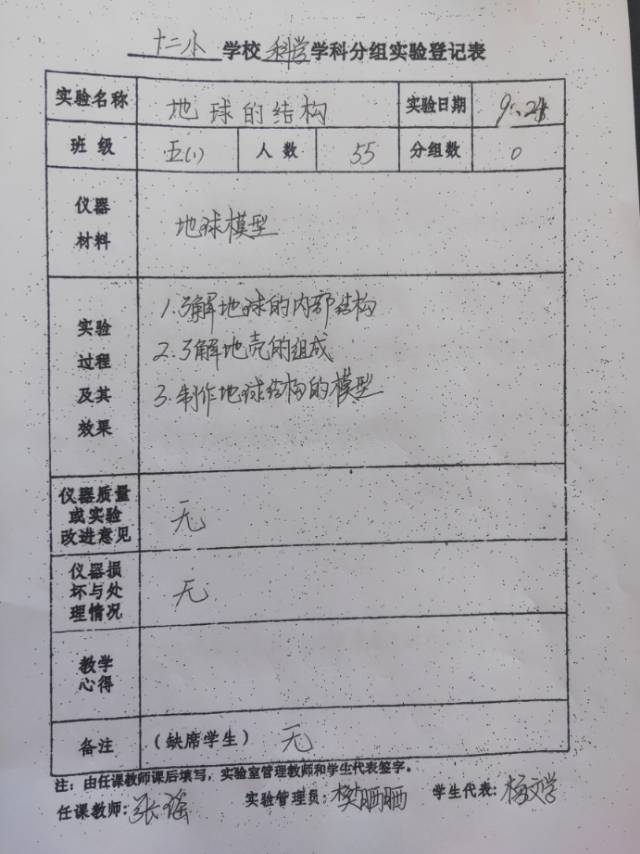 十二小 学校 科学 学科分组实验登记表
实验名称 地球的结构 实验日期 9.24
班 级 五(1) 人 数 55 分组数 0
仪器
材料
地球模型
实验
过程
及其
效果
1.了解地球的内部结构
2.了解地壳的组成
3.制作地球结构的模型
仪器质量
或实验
改进意见
无
仪器损
坏与处
理情况
无
教学
心得
备注 (缺席学生) 无
注:由任课教师课后填写,实验室管理教师和学生代表签字。
任课教师:张瑶 实验管理员:樊晒晒 学生代表:杨文学